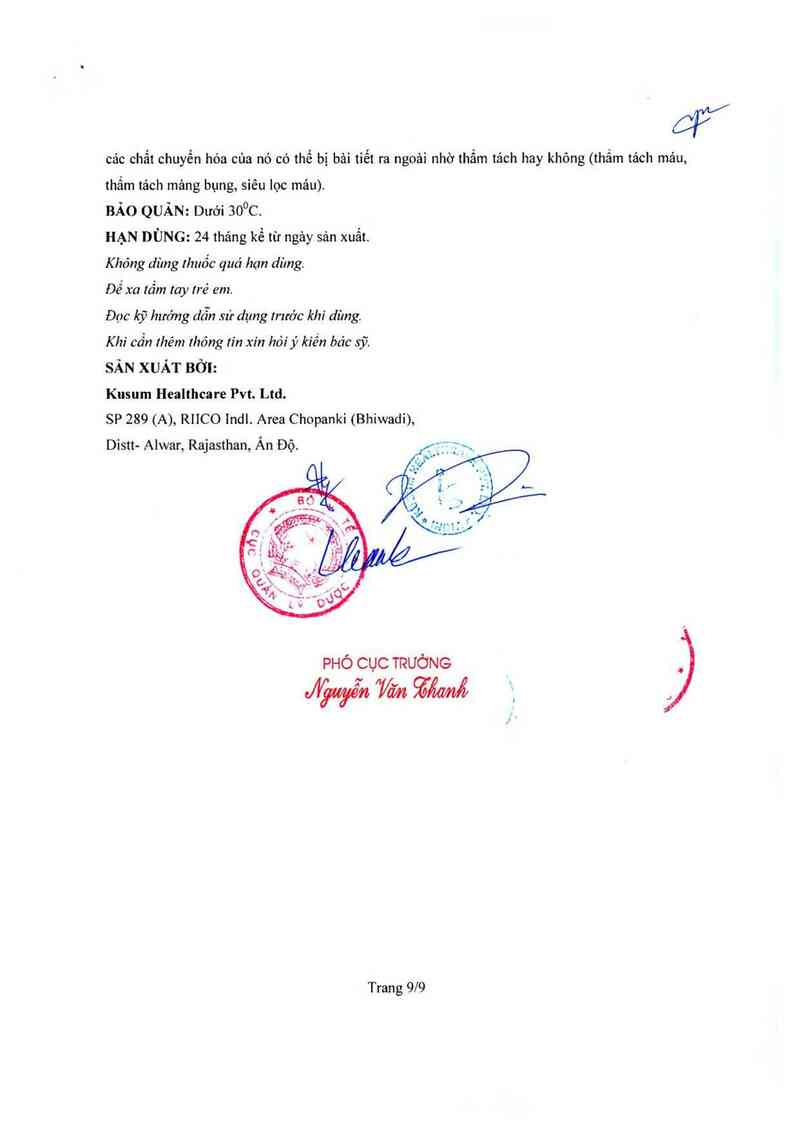 các chất chuyển hóa của nó có thể bị bài tiết ra ngoài nhờ thẩm tách hay không (thẩm tách máu,
thẩm tách màng bụng, siêu lọc máu).
BẢO QUẢN: Dưới 30⁰C.
HẠN DÙNG: 24 tháng kể từ ngày sản xuất.
Không dùng thuốc quá hạn dùng.
Để xa tầm tay trẻ em.
Đọc kỹ hướng dẫn sử dụng trước khi dùng.
Khi cần thêm thông tin xin hỏi ý kiến bác sỹ.
SẢN XUẤT BỞI:
Kusum Healthcare Pvt. Ltd.
SP 289 (A), RIICO Indl. Area Chopanki (Bhiwadi),
Distt- Alwar, Rajasthan, Ấn Độ.
BỘ Y TẾ
CỤC QUẢN LÝ DƯỢC
PHÓ CỤC TRƯỞNG
Nguyễn Văn Thanh
Trang 9/9